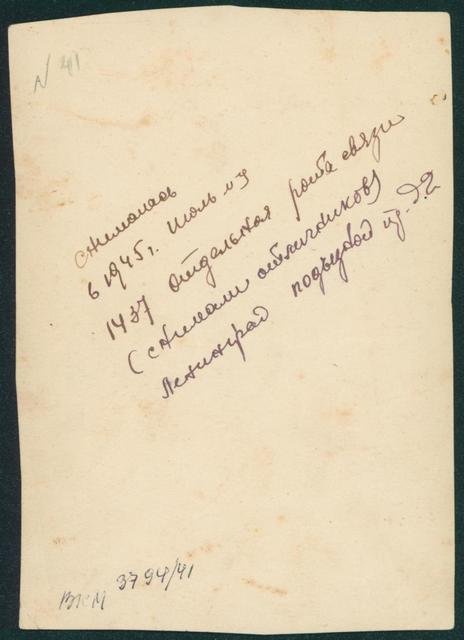 N 41
снималась
в 1945г. июль м-ц
1437 отдельная рота связи
(снимали отличников)
Ленинград подъезд
ВКМ 3794/41